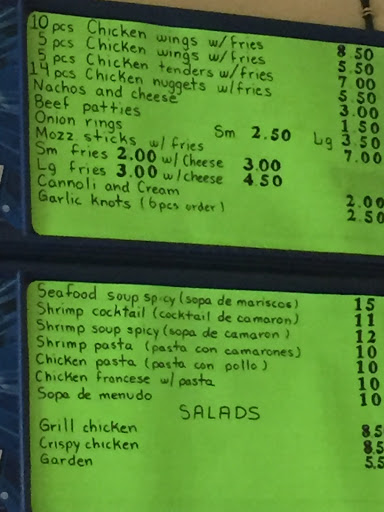 10 pcs Chicken wings w/fries 8.50
5 pcs Chicken wings w/fries 5.50
5 pcs Chicken tenders w/fries 7.00
14 pcs Chicken nuggets w/fries 5.50
Nachos and cheese 3.00
Beef patties 1.50
Onion rings Sm 2.50 Lg 3.50
Mozz sticks w/ fries 7.00
Sm fries 2.00 w/cheese 3.00
Lg fries 3.00 w/cheese 4.50
Cannoli and Cream 2.00
Garlic knots (6pcs order) 2.50
Seafood soup spicy (sopa de mariscos) 15
Shrimp cocktail (cocktail de camaron) 11
Shrimp soup spicy (sopa de camaron) 12
Shrimp pasta (pasta con camarones) 10
Chicken pasta (pasta con pollo) 10
Chicken francese w/ pasta 10
Sopa de menudo 10
SALADS
Grill chicken 8.5
Crispy chicken 8.5
Garden 5.5